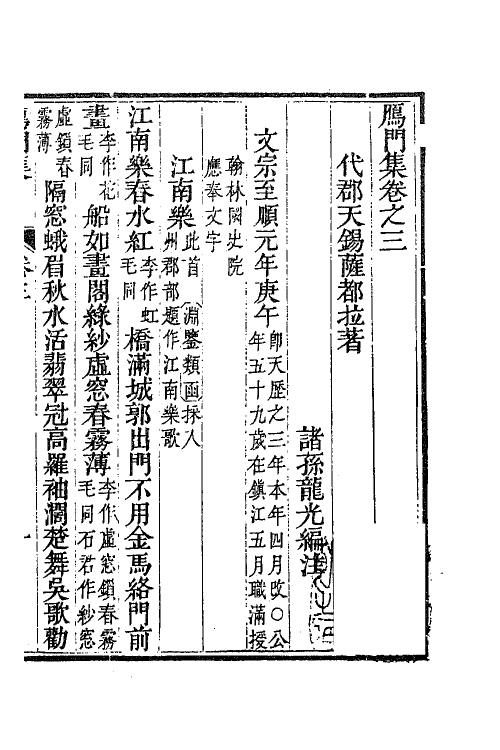 鴈門集卷之三
代郡天錫薩都拉著
諸孫龍光編注
文宗至順元年庚午即天歷之三年本年四月改○公年五十九歲在鎮江五月職滿授
翰林國史院應奉文字
江南樂此首淵鑒類函採入州郡部題作江南樂歌
江南樂春水紅李作虹毛同橋滿城郭出門不用金馬絡門前
畫李作花毛同船如畫閣綠紗虛窓春霧薄李作虛窓鎖春霧毛同石君作紗窓
虛鎖春霧薄隔窓蛾眉秋水活翡翠冠高羅袖濶楚舞吳歌勸
鴈門集
卷三
一